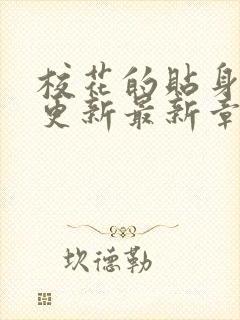 校花的贴身
更新最新章
坎德勒